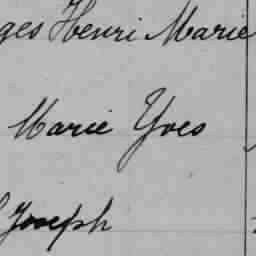 ges Henri Marie
Marie Yves
Joseph